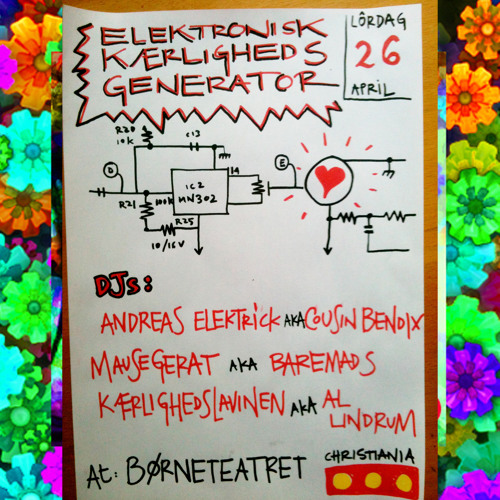 ELEKTRONISK
KÆRLIGHEDS
GENERATOR
LÖRDAG
26
APRIL
R20
10K
C13
D
E
IC2
MN302
14
R21
100K
R25
10/16V
DJs:
ANDREAS ELEKTRICK AKA COUSIN BENDIX
MAUSEGERAT AKA BAREMADS
KÆRLIGHEDSLAVINEN AKA AL
LINDRUM
At: BØRNETEATRET
CHRISTIANIA